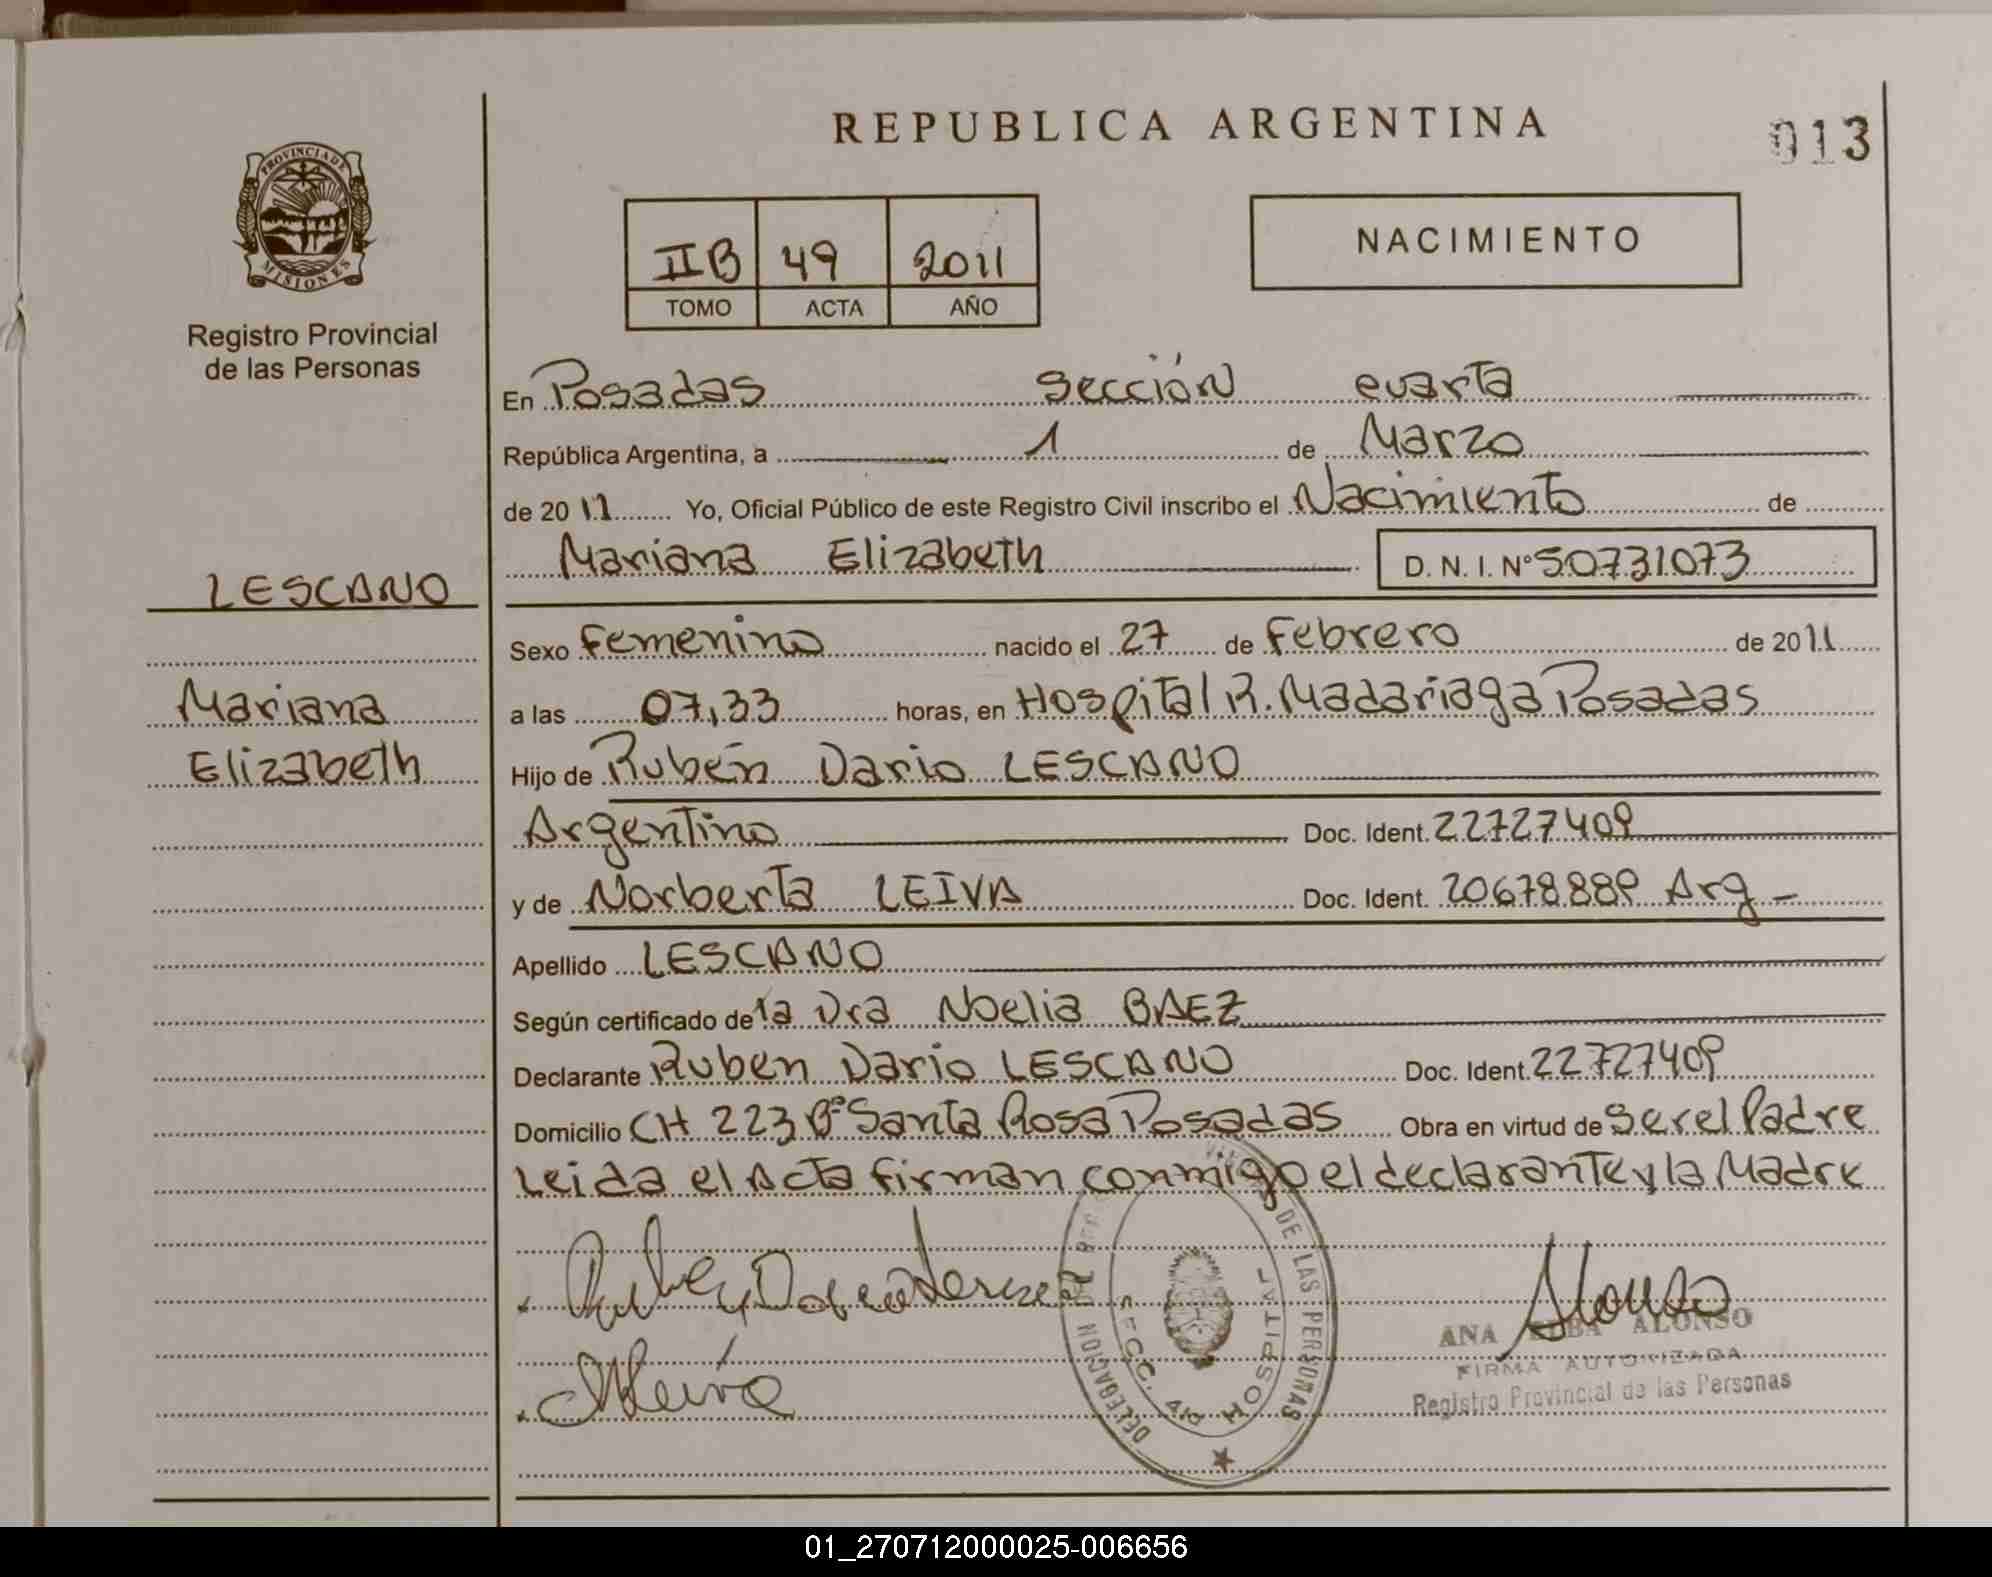 REPUBLICA ARGENTINA
013
PROVINCIA DE
MISIONES
Registro Provincial
de las Personas
IIB 49 2011
TOMO ACTA AÑO
NACIMIENTO
En Posadas Sección cuarta
República Argentina, a 1 de Marzo
de 2011 Yo, Oficial Público de este Registro Civil inscribo el Nacimiento de
Mariana Elizabeth D. N. I. N° 50731073
LESCANO
Mariana
Elizabeth
Sexo Femenino nacido el 27 de Febrero de 2011
a las 07,33 horas, en Hospital R. Madariaga Posadas
Hijo de Rubén Dario LESCANO
Argentino Doc. Ident. 22727409
y de Norberta LEIVA Doc. Ident. 20678889 Arg
Apellido LESCANO
Según certificado de la Dra Noelia BAEZ
Declarante Ruben Dario LESCANO Doc. Ident. 22727409
Domicilio CH 223 Bº Santa Rosa Posadas Obra en virtud de ser el Padre
Leida el Acta firman conmigo el declarante y la Madre
DELEGACION DE LAS PERSONAS
SECC. 4ta HOSPITAL
Alonso
ANA ELBA ALONSO
FIRMA AUTORIZADA
Registro Provincial de las Personas
01_270712000025-006656